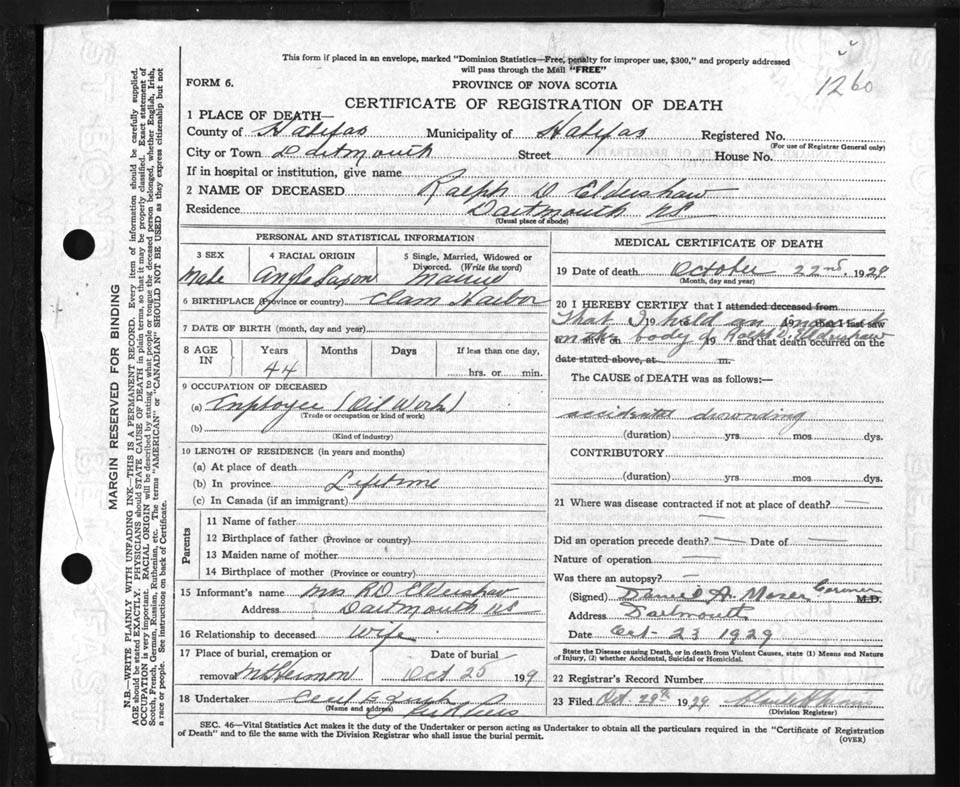 1260
This form if placed in an envelope, marked "Dominion Statistics—Free, penalty for improper use, $300," and properly addressed
will pass through the Mail "FREE"
FORM 6.
PROVINCE OF NOVA SCOTIA
CERTIFICATE OF REGISTRATION OF DEATH
1 PLACE OF DEATH—
County of Halifax Municipality of Halifax Registered No.
(For use of Registrar General only)
City or Town Dartmouth Street House No.
If in hospital or institution, give name
2 NAME OF DECEASED Ralph D Eldershaw
Residence Dartmouth NS
(Usual place of abode)
PERSONAL AND STATISTICAL INFORMATION
3 SEX
Male
4 RACIAL ORIGIN
Anglo Saxon
5 Single, Married, Widowed or
Divorced. (Write the word)
Married
6 BIRTHPLACE (Province or country) Clam Harbor
7 DATE OF BIRTH (month, day and year)
8 AGE
IN
Years Months Days If less than one day,
44
hrs. or min.
9 OCCUPATION OF DECEASED
(a) Employee (Oil Works)
(Trade or occupation or kind of work)
(b)
(Kind of industry)
10 LENGTH OF RESIDENCE (in years and months)
(a) At place of death
(b) In province Lifetime
(c) In Canada (if an immigrant)
Parents
11 Name of father
12 Birthplace of father (Province or country)
13 Maiden name of mother
14 Birthplace of mother (Province or country)
15 Informant's name Mrs RD Eldershaw
Address Dartmouth NS
16 Relationship to deceased Wife
17 Place of burial, cremation or
removal Mt Hermon
Date of burial
Oct 25 199
18 Undertaker Cecil E
(Name and address)
MEDICAL CERTIFICATE OF DEATH
19 Date of death October 22nd, 1929
(Month, day and year)
20 I HEREBY CERTIFY that I attended deceased from
That I held an
19 19 that I last saw
body of Eldershaw
19 and that death occurred on the
date stated above, at m.
The CAUSE of DEATH was as follows:—
accidental drownding
(duration) yrs. mos. dys.
CONTRIBUTORY
(duration) yrs. mos. dys.
21 Where was disease contracted if not at place of death?
Did an operation precede death? — Date of —
Nature of operation —
Was there an autopsy? —
(Signed) Daniel A. Moser Coroner M.D.
Address Dartmouth
Date Oct - 23 1929
State the Disease causing Death, or in death from Violent Causes, state (1) Means and Nature
of Injury, (2) whether Accidental, Suicidal or Homicidal.
22 Registrar's Record Number
23 Filed Oct. 29th 1929
(Division Registrar)
SEC. 46—Vital Statistics Act makes it the duty of the Undertaker or person acting as Undertaker to obtain all the particulars required in the "Certificate of Registration
of Death" and to file the same with the Division Registrar who shall issue the burial permit.
(OVER)
MARGIN RESERVED FOR BINDING
N.B.—WRITE PLAINLY WITH UNFADING INK—THIS IS A PERMANENT RECORD. Every item of information should be carefully supplied.
AGE should be stated EXACTLY. PHYSICIANS should STATE CAUSE OF DEATH in plain terms, so that it may be properly classified. Exact statement of
OCCUPATION is very important. RACIAL ORIGIN will be described by stating to what people or tongue the deceased person belonged, whether English, Irish,
Scotch, French, German, Russian, Ruthenian, etc. The terms "AMERICAN" or "CANADIAN" SHOULD NOT BE USED as they express citizenship but not
a race or people. See instructions on back of Certificate.